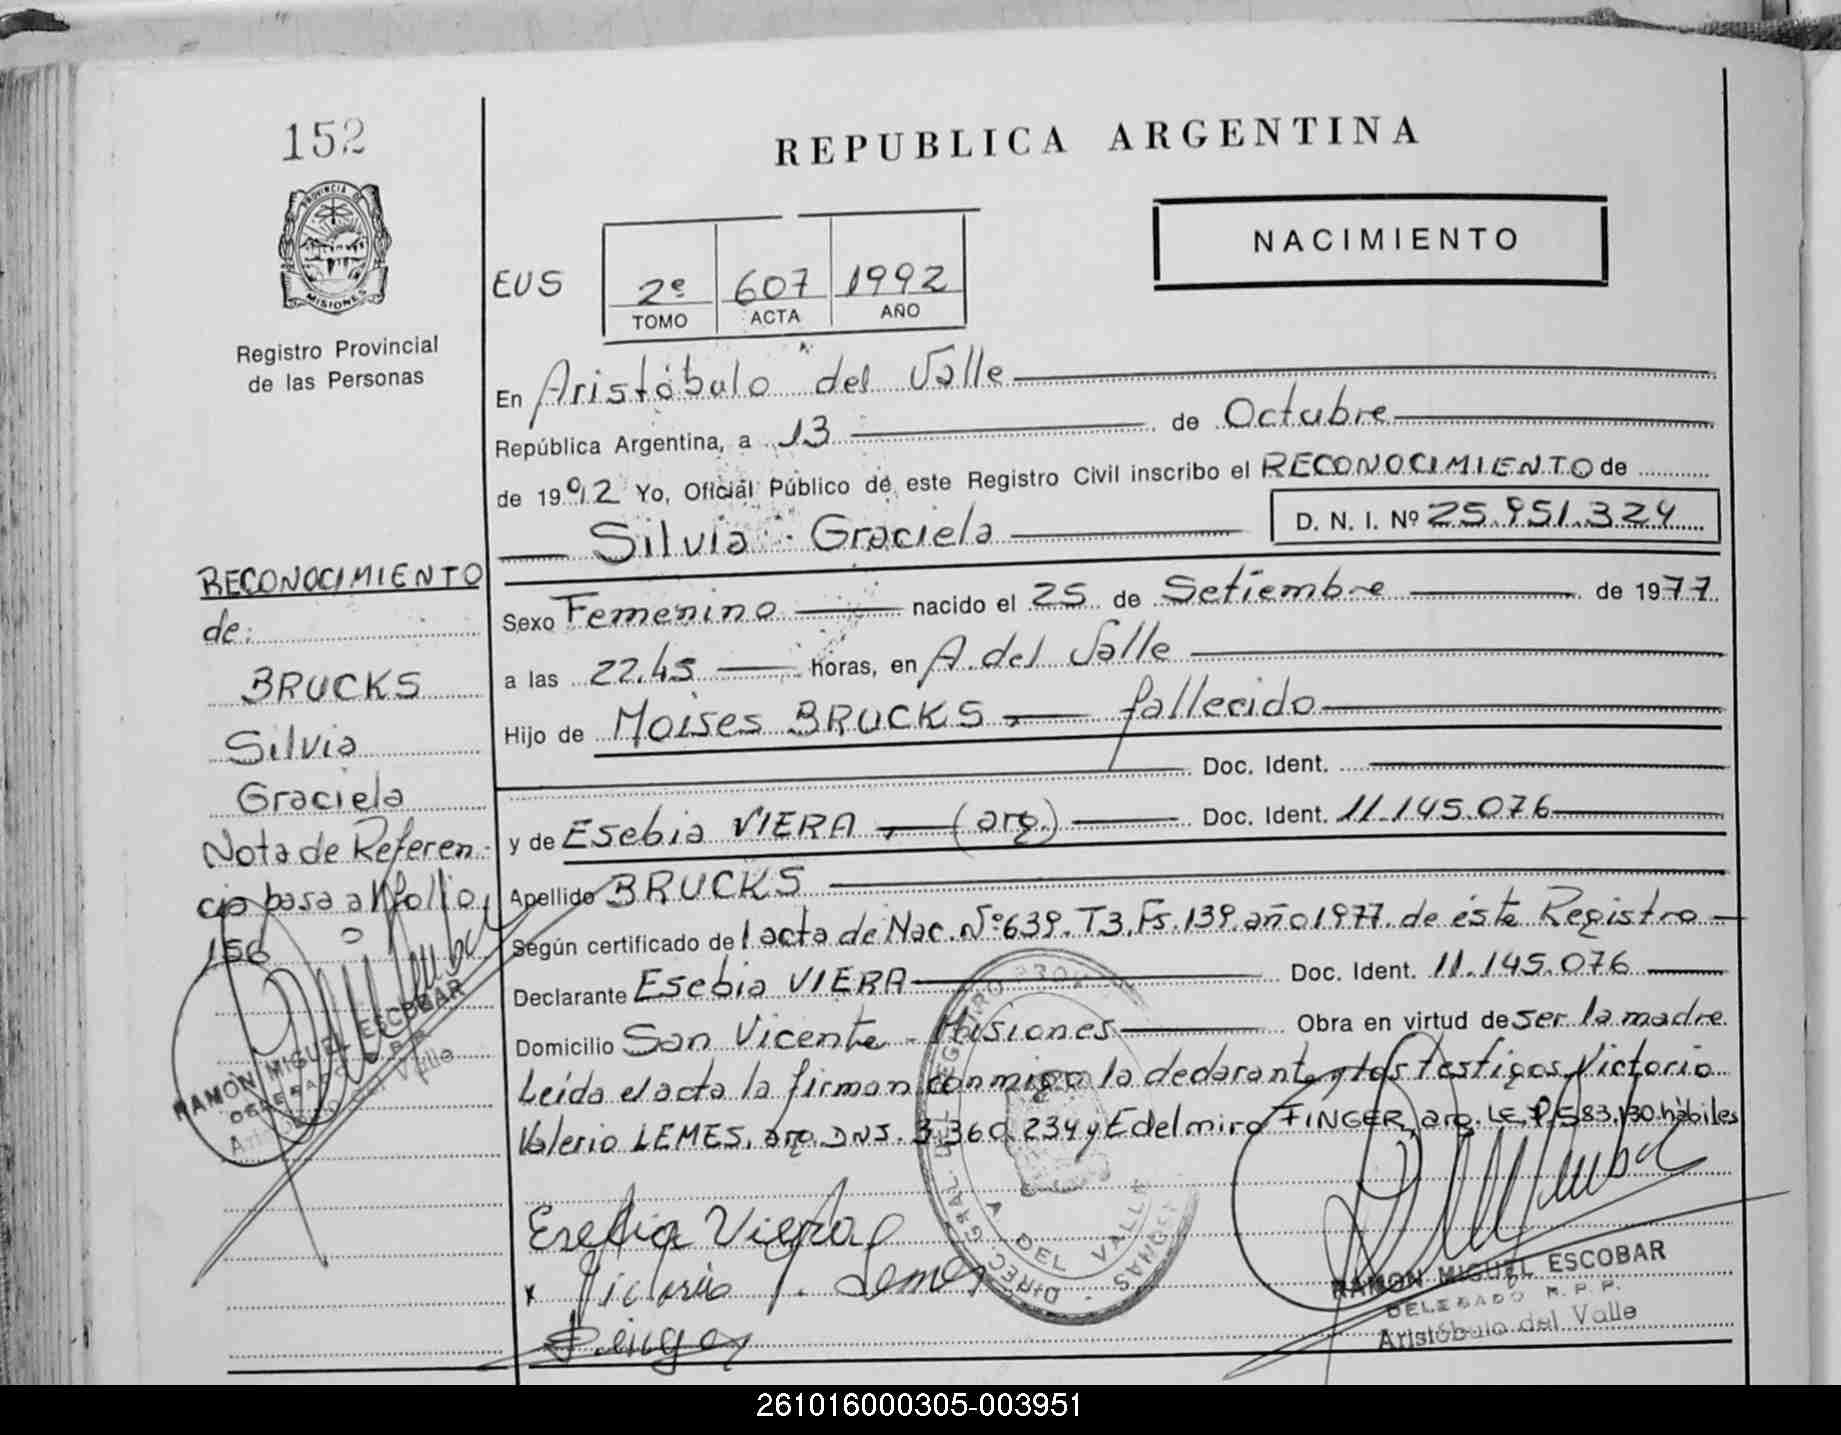 152
REPUBLICA ARGENTINA
PROVINCIA DE
MISIONES
NACIMIENTO
EUS
2º 607 1992
TOMO ACTA AÑO
Registro Provincial
de las Personas
En Aristóbulo del Valle
República Argentina, a 13 de Octubre
de 1992 Yo, Oficial Público de este Registro Civil inscribo el RECONOCIMIENTO de
Silvia Graciela D. N. I. Nº 25.951.324
Sexo Femenino nacido el 25 de Setiembre de 1977
a las 22.45 horas, en A. del Valle
Hijo de Moises BRUCKS fallecido
Doc. Ident.
y de Esebia VIERA (arg.) Doc. Ident. 11.145.076
Apellido BRUCKS
Según certificado de l acta de Nac. Nº 639. T3. Fs. 139. año 1977. de éste Registro
Declarante Esebia VIERA Doc. Ident. 11.145.076
Domicilio San Vicente - Misiones Obra en virtud de ser la madre
Leída el acta la firman conmigo la declarante y los testigos Victorio
Valerio LEMES. arg. DNI. 3.360.234 y Edelmiro FINGER, arg. LE 583.130 hábiles
RECONOCIMIENTO
de:
BRUCKS
Silvia
Graciela
Nota de Referen-
cia pasa al folio
156
RAMON MIGUEL ESCOBAR
DELEGADO R.P.P.
Aristóbulo del Valle
Esebia Viera
x Victorio V. Lemes
Finger
DIREC. GRAL. DEL REGISTRO PROV.
A DEL VALLE
RAMON MIGUEL ESCOBAR
DELEGADO R.P.P.
Aristóbulo del Valle
261016000305-003951